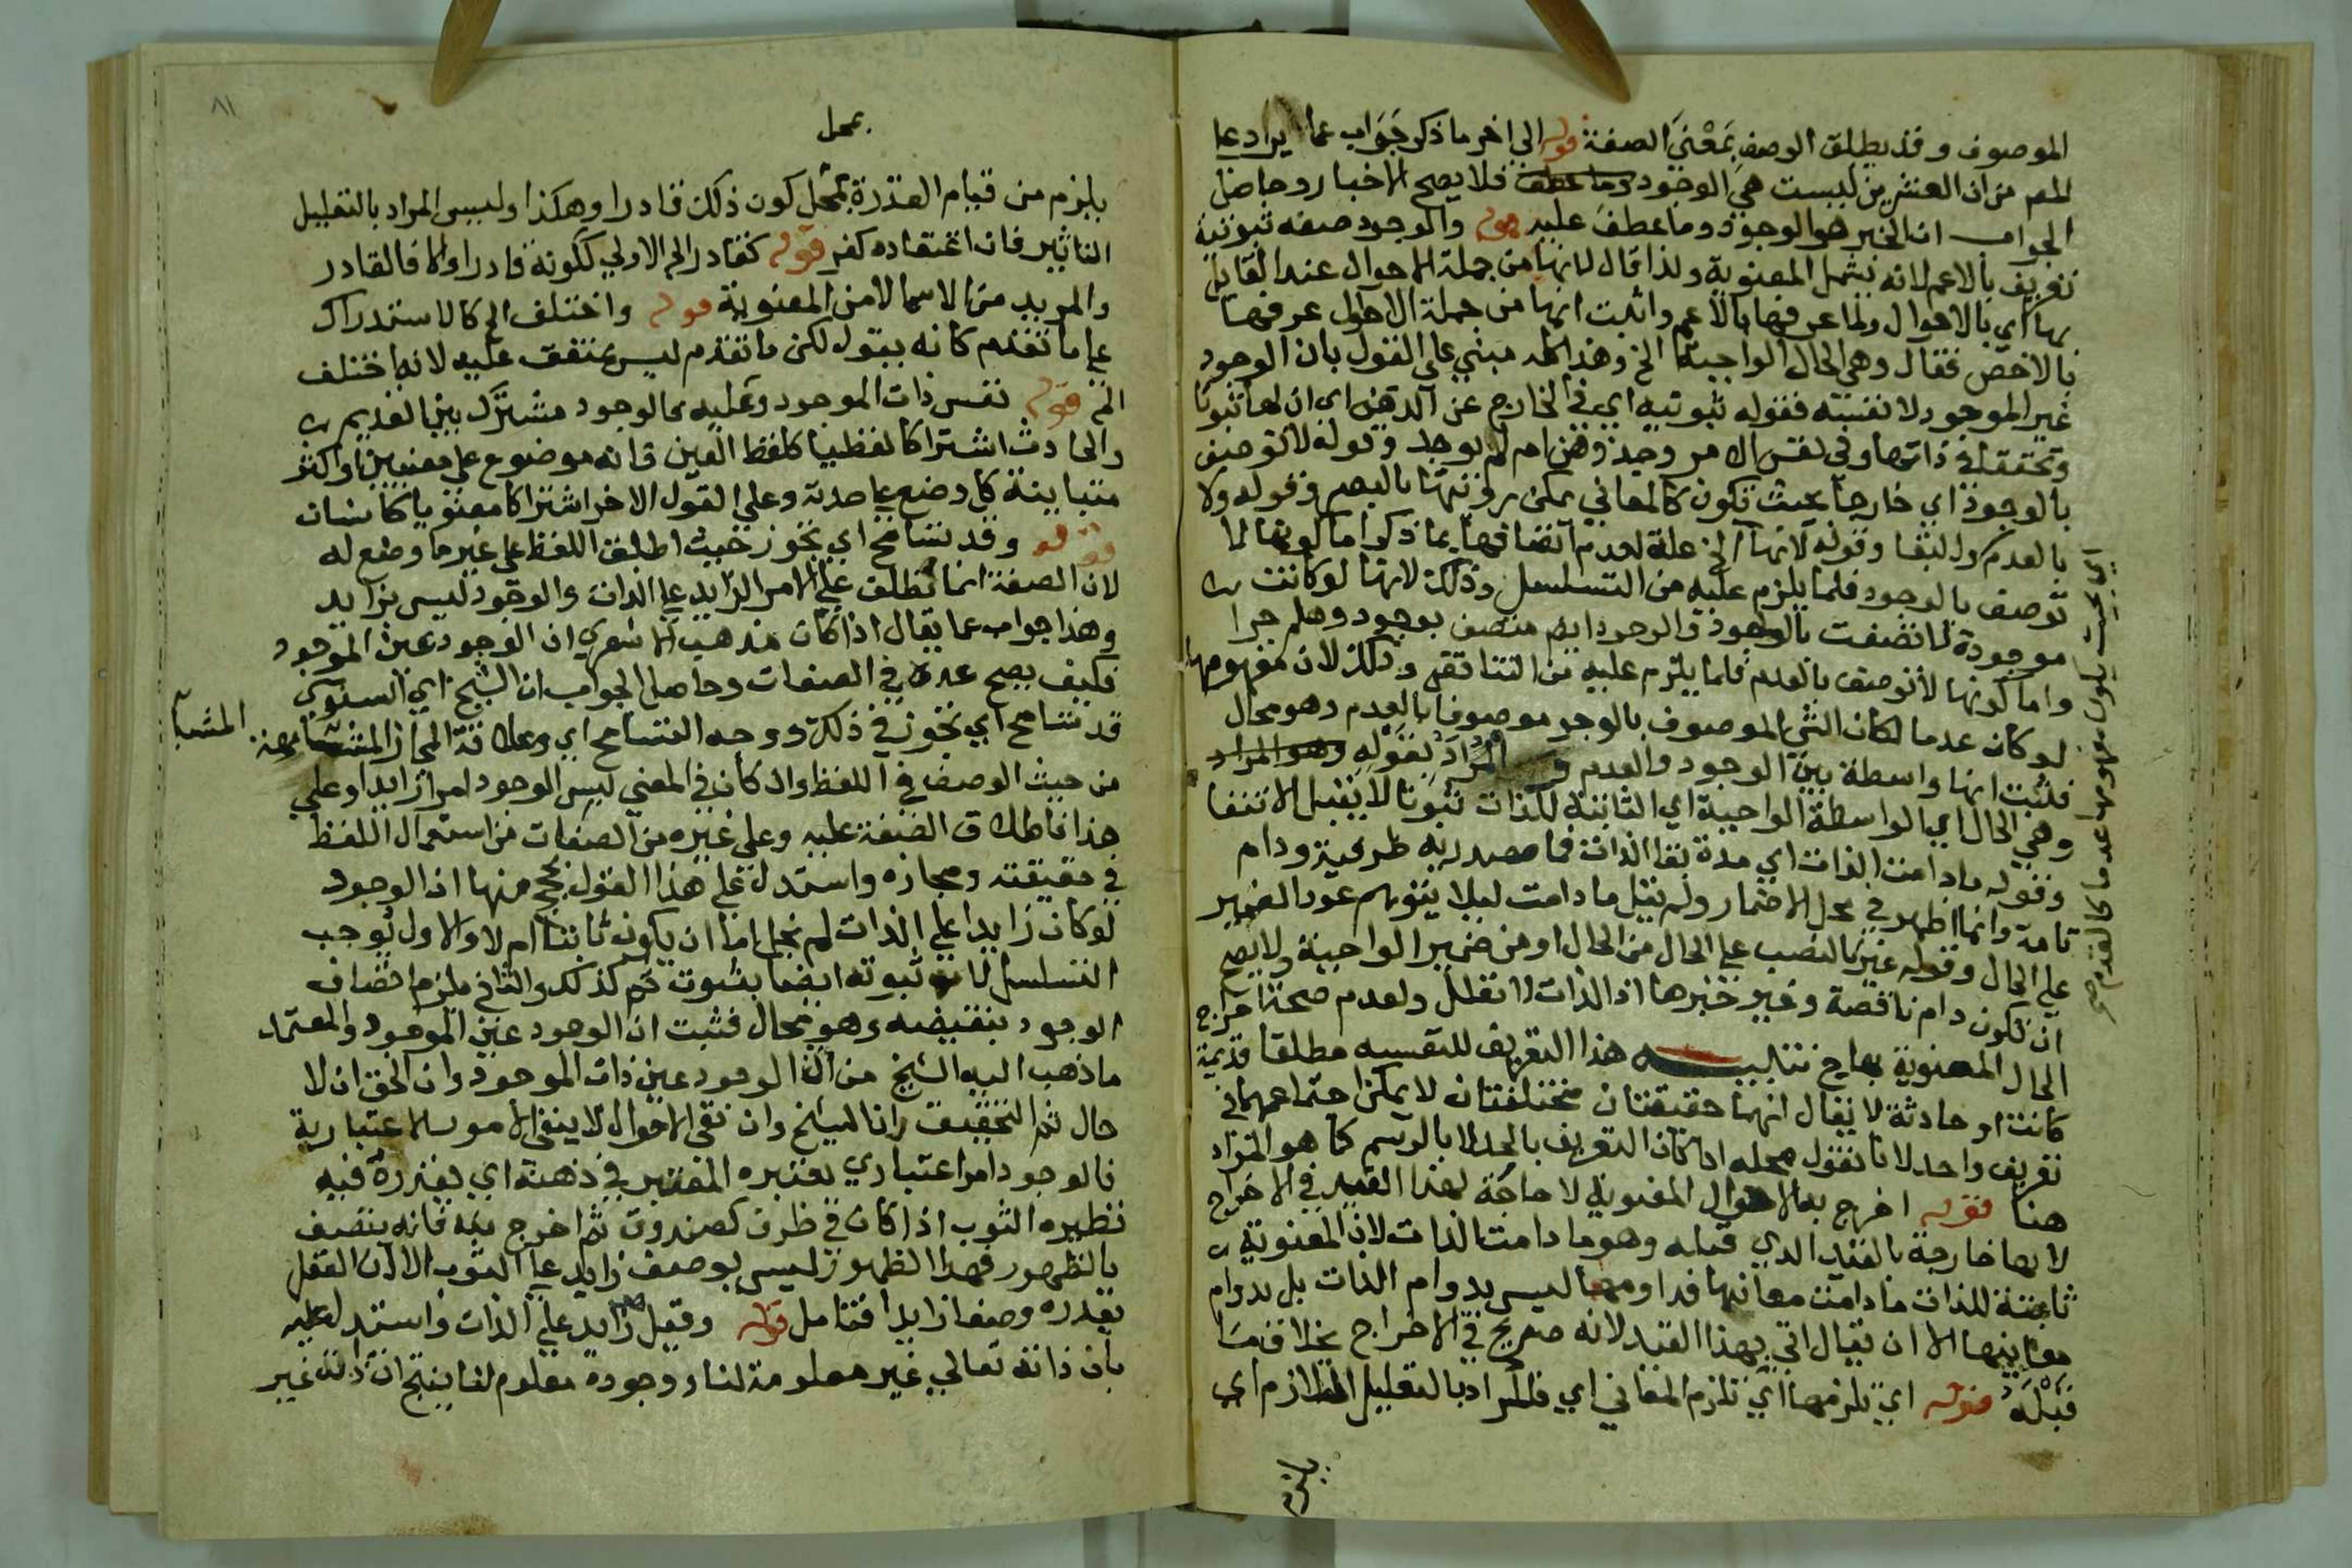 الموصوف وقد يطلق الوصف بمعنى الصفة قوله الى اخر ما ذكر جواب عما يراد على
المص من ان العشرين ليست هي الوجود وما عطف فلا يصح الاخبار وحاصل
الجواب ان الخبر هو الوجود وما عطف عليه قوله والوجود صفه ثبوتية
تعريف بالاعم لانه يشمل المعنوية ولذا قال لانها من جملة الاحوال عند القايل
بها اي بالاحوال ولما عرفها بالاعم واثبت انها من جملة الاحوال عرفها
بالاخص فقال وهي الحال الواجبة الخ وهذا كله مبني على القول بان الوجود
غير الموجود لا نفسه فقوله ثبوتيه اي في الخارج عن الذهن اي ان لها ثبوتا
وتحققا في ذاتها وفي نفس الامر وجد ذهن ام لم يوجد وقوله لا توصف
بالوجود اي خارجا بحيث تكون كالمعاني يمكن رؤيتها بالبصر وقوله ولا
بالعدم ولا لنفا وقوله لانها الخ علة لعدم اتصافها بما ذكر اما كونها لا
توصف بالوجود فلما يلزم عليه من التسلسل وذلك لانها لو كانت
موجودة لاتصفت بالوجود والوجود ايض متصف بوجود وهلم جرا
واما كونها لا توصف بالعدم فلما يلزم عليه من التناقض وذلك لان مفهومها
لو كان عدما لكان الشي الموصوف بالوجو موصوفا بالعدم وهو محال
فثبت انها واسطة بين الوجود والعدم المراد بقوله وهو المراد
وهي الحال اي الواسطة الواجبة اي الثابتة للذات ثبوتا لا يقبل الانتفا
وقوله ما دامت الذات اي مدة بقا الذات فما مصدريه ظرفية ودام
تامة وانما اظهر في محل الاضمار ولم يقل ما دامت ليلا يتوهم عود الضمير
على الحال وقوله غير بالنصب على الحال من الحال او من ضمير الواجبة ولا يصح
ان تكون دام ناقصة وغير خبرها اذ الذات لا تعلل ولعدم صحة اخراج
الحال المعنوية بها ح تنبيه هذا التعريف للنفسيه مطلقا قديمة
كانت او حادثة لا يقال انهما حقيقتان مختلفتان لا يمكن اجتماعهما في
تعريف واحد لانا نقول محله اذا كان التعريف بالحد لا بالرسم كما هو المراد
هنا قوله اخرج به الاحوال المعنوية لا حاجة لهذا القيد في الاخراج
لانها خارجة بالقيد الذي قبله وهو ما دامت الذات لان المعنوية
ثابتة للذات ما دامت معانيها فدوامها ليس بدوام الذات بل بدوام
معانيها الا ان يقال اتي بهذا القيد لانه صريح في الاخراج بخلاف ما
قبله قوله اي تلزمها اي تلزم المعاني اي فالمراد بالتعليل التلازم اي
يلزم
اي بحيث يكون مفهومها عدما كالقدم صح
٨١
بمحل
يلزم من قيام القدرة بمحل كون ذلك قادرا وهكذا وليس المراد بالتعليل
التاثير فان اعتقاده كفر قوله كقادر الخ الاولى ككونه قادرا والا فالقادر
والمريد من الاسما لا من المعنوية قوله واختلف الخ كالاستدراك
على ما تقدم كانه يقول لكن ما تقدم ليس بمتفق عليه لانه اختلف
الخ قوله نفس ذات الموجود وعليه فالوجود مشترك بين القديم
والحادث اشتراكا لفظيا كلفظ العين فانه موضوع على معنيين او اكثر
متباينة كل وضع على حدته وعلى القول الاخر اشتراكا معنويا كانسان
قوله وقد تسامح اي تجوز حيث اطلق اللفظ على غير ما وضع له
لان الصفة انما تطلق على الامر الزايد على الذات والوجود ليس بزايد
وهذا جواب عما يقال اذا كان مذهب الاشعري ان الوجود عين الموجود
فكيف يصح عده في الصفات وحاصل الجواب ان الشيخ اي السنوسي
قد تسامح اي تجوز في ذلك ووجه التسامح اي وعلاقة المجاز المشابهة المشابهة
من حيث الوصف في اللفظ وان كان في المعنى ليس الوجود امرا زايدا وعلى
هذا فاطلاق الصفة عليه وعلى غيره من الصفات من استعمال اللفظ
في حقيقته ومجازه واستدل على هذا القول بحجج منها ان الوجود
لو كان زايدا على الذات لم يخل اما ان يكون ثابتا ام لا والاول يوجب
التسلسل لان ثبوته ايضا بثبوت ثم كذلك والثاني ملزم اتصاف
الوجود بنقيضه وهو محال فثبت ان الوجود عين الموجود والمعتمد
ما ذهب اليه الشيخ من ان الوجود عين ذات الموجود وان الحق ان لا
حال ثم التحقيق ان الشيخ وان نفى الاحوال لا ينفي الامور الاعتبارية
فالوجود امر اعتباري يعتبره المعتبر في ذهنه اي يقدره فيه
نظيره الثوب اذا كان في ظرف كصندوق ثم اخرج منه فانه يتصف
بالظهور فهذا الظهور ليس بوصف زايد على الثوب الا ان العقل
يقدره وصفا زايدا فتامل قوله وقيل زايد على الذات واستدل عليه
بان ذاته تعالى غير معلومة لنا ووجوده معلوم لنا ينتج ان ذاته غير